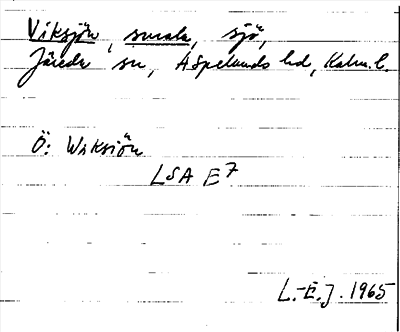 Viksjön, smala, sjö,
Järeda sn, Aspelands hd, Kalm. l.
Ö: Wiksiön
LSA E7
L.-E. J. 1965